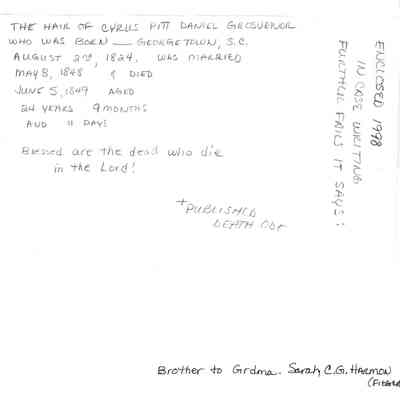 THE HAIR OF CYRUS PITT DANIEL GROSVENOR
WHO WAS BORN — GEORGETOWN, S.C.
AUGUST 2nd, 1824. WAS MARRIED
MAY 8, 1848 & DIED
JUNE 5, 1849 AGED
24 YEARS 9 MONTHS
AND 11 DAYS
Blessed are the dead who die
in the Lord!
+PUBLISHED
DEATH ODE
ENCLOSED 1998
IN CASE WRITING
FURTHER FAILS IT SAYS:
Brother to Grdma. Sarah C.G. HARMON